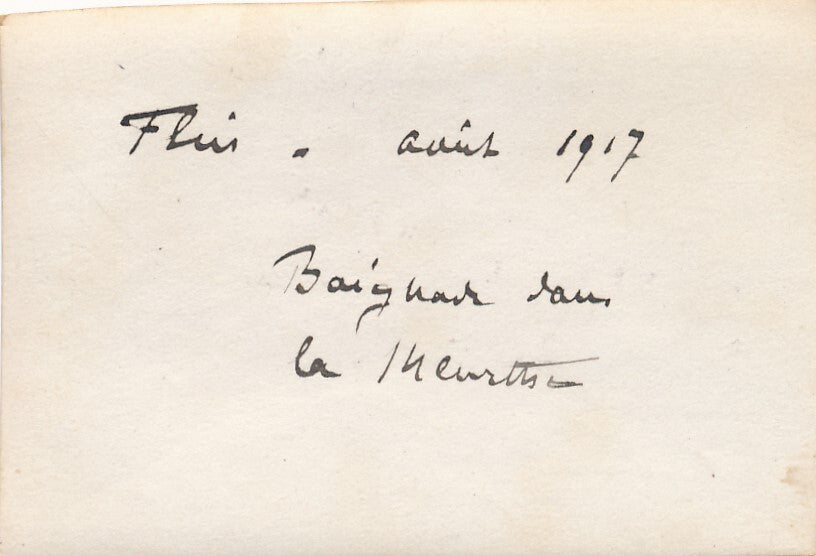 Flin . août 1917
Baignade dans
la Meurthe